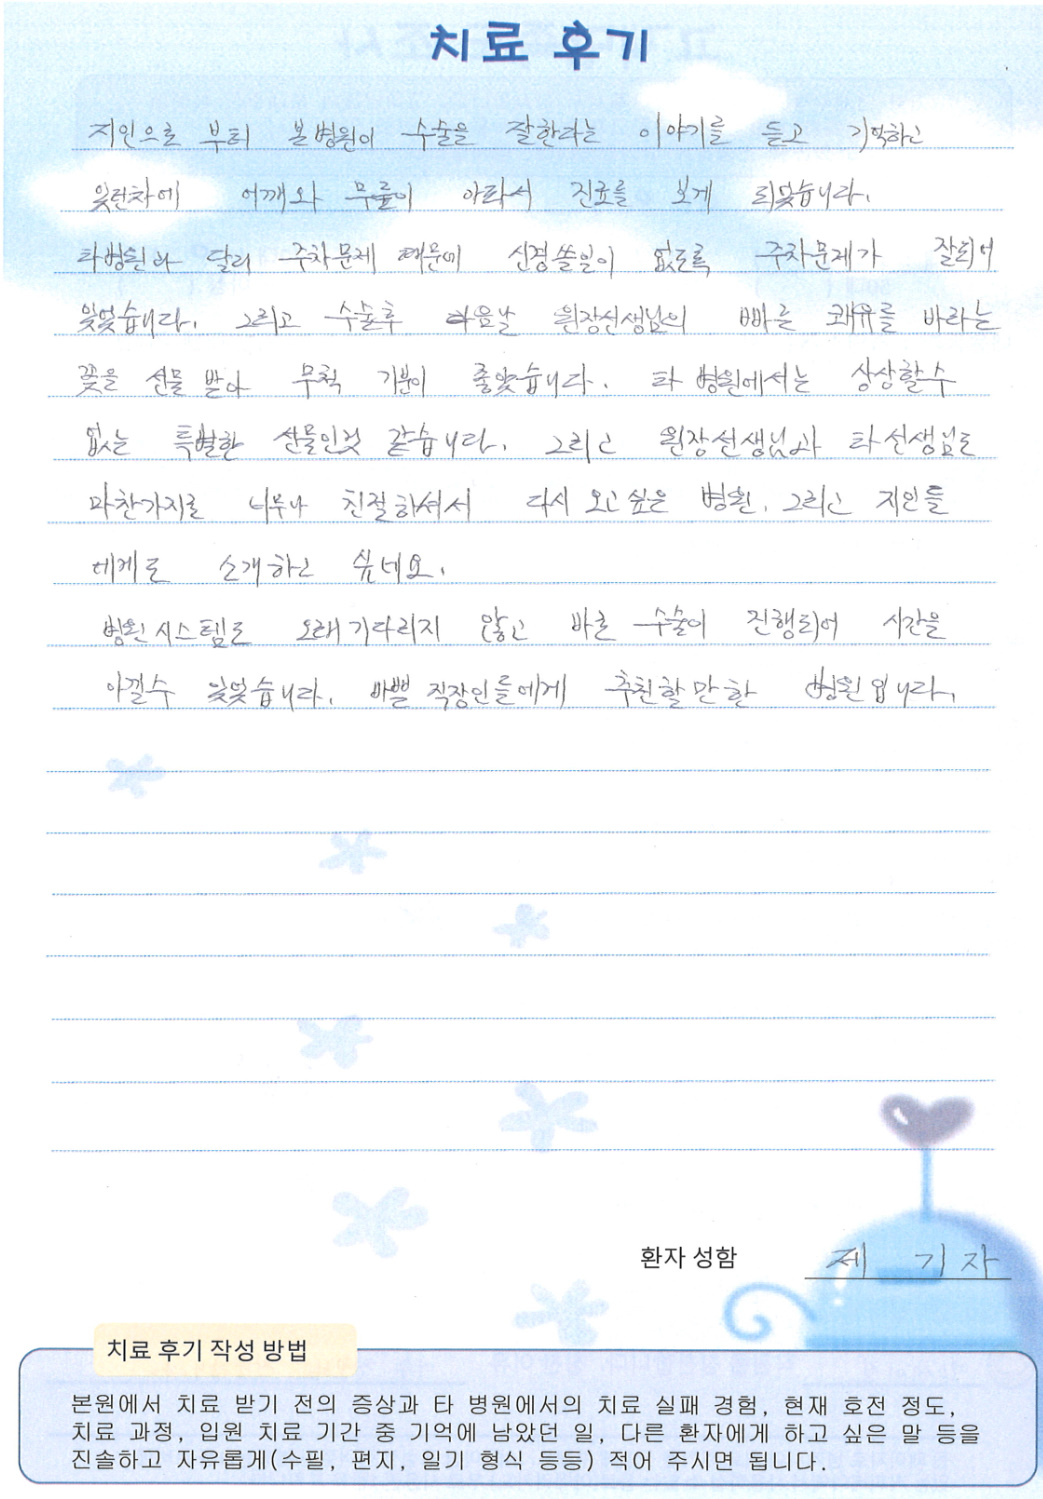 치료 후기
지인으로 부터 본병원이 수술을 잘한다는 이야기를 듣고 기억하고
있던차에 어깨와 무릎이 아파서 진료를 보게 되었습니다.
타병원과 달리 주차문제 때문에 신경쓸일이 없도록 주차문제가 잘되어
있었습니다. 그리고 수술후 다음날 원장선생님의 빠른 쾌유를 바라는
꽃을 선물 받아 무척 기분이 좋았습니다. 타 병원에서는 상상할수
없는 특별한 선물인것 같습니다. 그리고 원장선생님과 타선생님도
마찬가지로 너무나 친절하셔서 다시 오고싶은 병원. 그리고 지인들
에게도 소개하고 싶네요.
병원시스템도 오래기다리지 않고 바로 수술이 진행되어 시간을
아낄수 있었습니다. 바쁜 직장인들에게 추천할만한 병원입니다.
환자 성함 제 기자
치료 후기 작성 방법
본원에서 치료 받기 전의 증상과 타 병원에서의 치료 실패 경험, 현재 호전 정도,
치료 과정, 입원 치료 기간 중 기억에 남았던 일, 다른 환자에게 하고 싶은 말 등을
진솔하고 자유롭게(수필, 편지, 일기 형식 등등) 적어 주시면 됩니다.